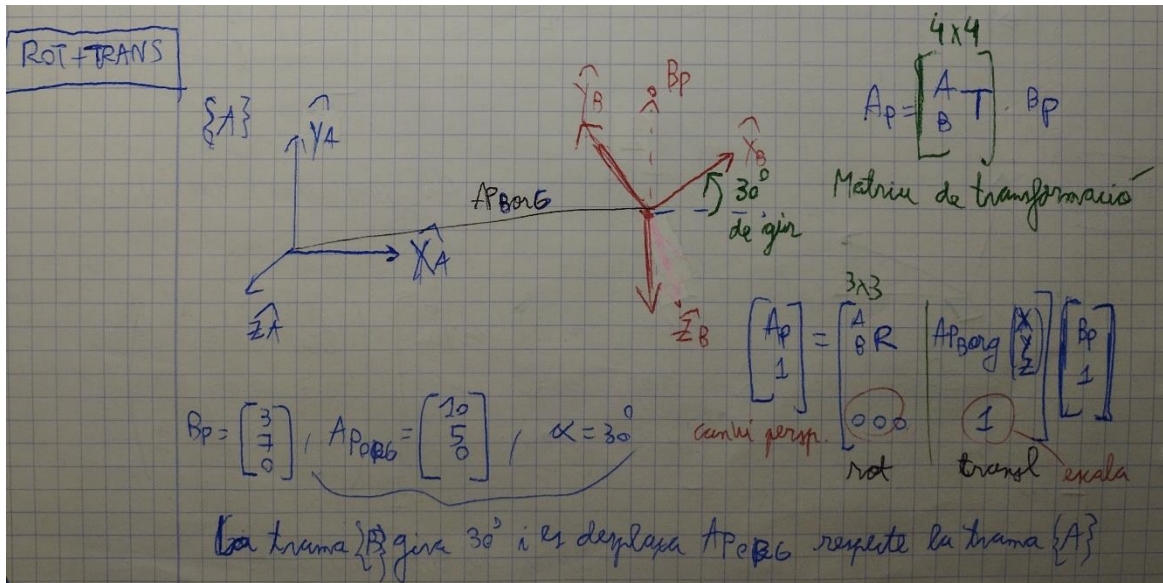 ROT + TRANS
{A}
ŶA
X̂A
ẐA
APBORG
ŶB
Bp
X̂B
30°
de gir
ẐB
4x4
Ap = [A B T] · Bp
Matriu de transformació
3x3
[Ap 1] = [A B R | APBorg (X Y Z) 0 0 0 | 1] [Bp 1]
canvi persp.
rot
transl
escala
Bp = [3 7 0], APORG = [10 5 0], α = 30°
La trama {B} gira 30° i es desplaça APORG respecte la trama {A}